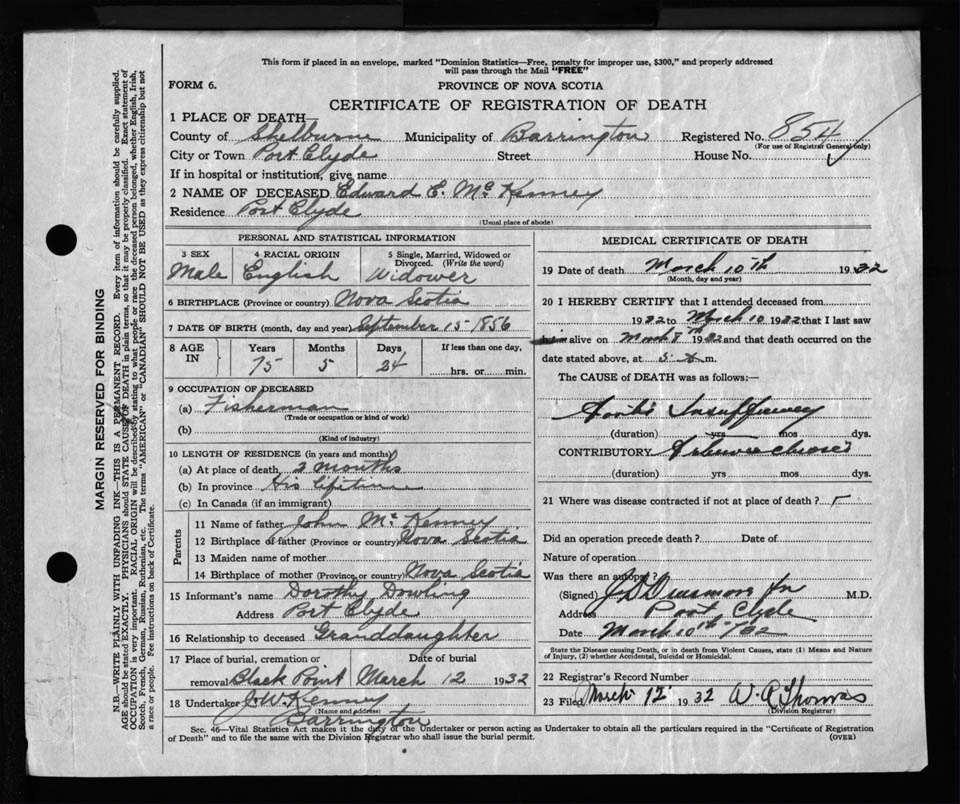 This form if placed in an envelope, marked "Dominion Statistics—Free, penalty for improper use, $300," and properly addressed
will pass through the Mail "FREE"
FORM 6.
PROVINCE OF NOVA SCOTIA
CERTIFICATE OF REGISTRATION OF DEATH
1 PLACE OF DEATH
County of Shelburne Municipality of Barrington Registered No. 854
(For use of Registrar General only)
City or Town Port Clyde Street House No.
If in hospital or institution, give name
2 NAME OF DECEASED Edward E. McKenney
Residence Port Clyde
(Usual place of abode)
PERSONAL AND STATISTICAL INFORMATION
3 SEX 4 RACIAL ORIGIN 5 Single, Married, Widowed or
Divorced. (Write the word)
Male English Widower
6 BIRTHPLACE (Province or country) Nova Scotia
7 DATE OF BIRTH (month, day and year) September 15 1856
8 AGE IN Years Months Days If less than one day,
75 5 24 hrs. or min.
9 OCCUPATION OF DECEASED
(a) Fisherman
(Trade or occupation or kind of work)
(b)
(Kind of industry)
10 LENGTH OF RESIDENCE (in years and months)
(a) At place of death, 3 months
(b) In province His lifetime
(c) In Canada (if an immigrant)
Parents
11 Name of father John McKenney
12 Birthplace of father (Province or country) Nova Scotia
13 Maiden name of mother
14 Birthplace of mother (Province or country) Nova Scotia
15 Informant's name Dorothy Dowling
Address Port Clyde
16 Relationship to deceased Granddaughter
17 Place of burial, cremation or Date of burial
removal Black Point March 12 1932
18 Undertaker J. W. Kenney
(Name and address)
Barrington
MEDICAL CERTIFICATE OF DEATH
19 Date of death March 10th 1932
(Month, day and year)
20 I HEREBY CERTIFY that I attended deceased from
1932 to March 10 1932 that I last saw
him alive on March 8th 1932 and that death occurred on the
date stated above, at 5 m.
The CAUSE of DEATH was as follows:—
Aortic Insufficiency
(duration) yrs mos dys.
CONTRIBUTORY
(duration) yrs mos dys.
21 Where was disease contracted if not at place of death?
Did an operation precede death? Date of
Nature of operation
Was there an autopsy?
(Signed) M.D.
Address Port Clyde
Date March 10th
State the Disease causing Death, or in death from Violent Causes, state (1) Means and Nature
of Injury, (2) whether Accidental, Suicidal or Homicidal.
22 Registrar's Record Number
23 Filed March 12 1932 Thomas
(Division Registrar)
Sec. 46—Vital Statistics Act makes it the duty of the Undertaker or person acting as Undertaker to obtain all the particulars required in the "Certificate of Registration
of Death" and to file the same with the Division Registrar who shall issue the burial permit.
(OVER)
MARGIN RESERVED FOR BINDING
N.B.—WRITE PLAINLY WITH UNFADING INK—THIS IS A PERMANENT RECORD. Every item of information should be carefully supplied.
AGE should be stated EXACTLY. PHYSICIANS should STATE CAUSE OF DEATH in plain terms, so that it may be properly classified. Exact statement of
OCCUPATION is very important. RACIAL ORIGIN will be described by stating to what people or race the deceased person belonged, whether English, Irish,
Scotch, French, German, Russian, Ruthenian, etc. The terms "AMERICAN" or "CANADIAN" SHOULD NOT BE USED as they express citizenship but not
a race or people. See instructions on back of Certificate.